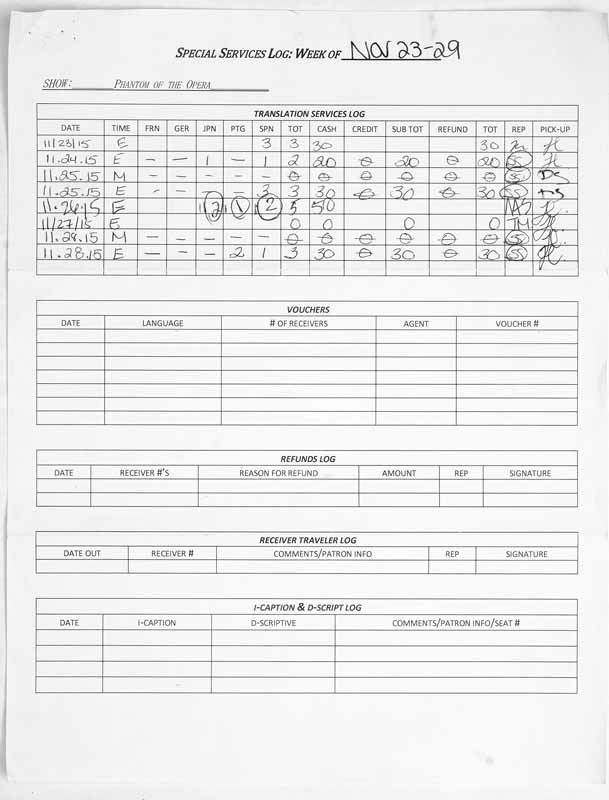 SPECIAL SERVICES LOG: WEEK OF NOV 23-29
SHOW: PHANTOM OF THE OPERA
TRANSLATION SERVICES LOG
DATE TIME FRN GER JPN PTG SPN TOT CASH CREDIT SUB TOT REFUND TOT REP PICK-UP
11/23/15 E 3 3 30 30
11.24.15 E – – 1 – 1 2 20 0 20 0 20 SS
11.25.15 M – – – – – 0 0 0 0 0 0 SS DS
11.25.15 E – – – – 3 3 30 0 30 0 30 SS DS
11.26.15 E 2 1 2 5 50 MS
11/27/15 E 0 0 0 0 TM
11.28.15 M – – – – – 0 0 0 0 0 0 SS
11.28.15 E – – – 2 1 3 30 0 30 0 30 SS
VOUCHERS
DATE LANGUAGE # OF RECEIVERS AGENT VOUCHER #
REFUNDS LOG
DATE RECEIVER #'S REASON FOR REFUND AMOUNT REP SIGNATURE
RECEIVER TRAVELER LOG
DATE OUT RECEIVER # COMMENTS/PATRON INFO REP SIGNATURE
I-CAPTION & D-SCRIPT LOG
DATE I-CAPTION D-SCRIPTIVE COMMENTS/PATRON INFO/SEAT #